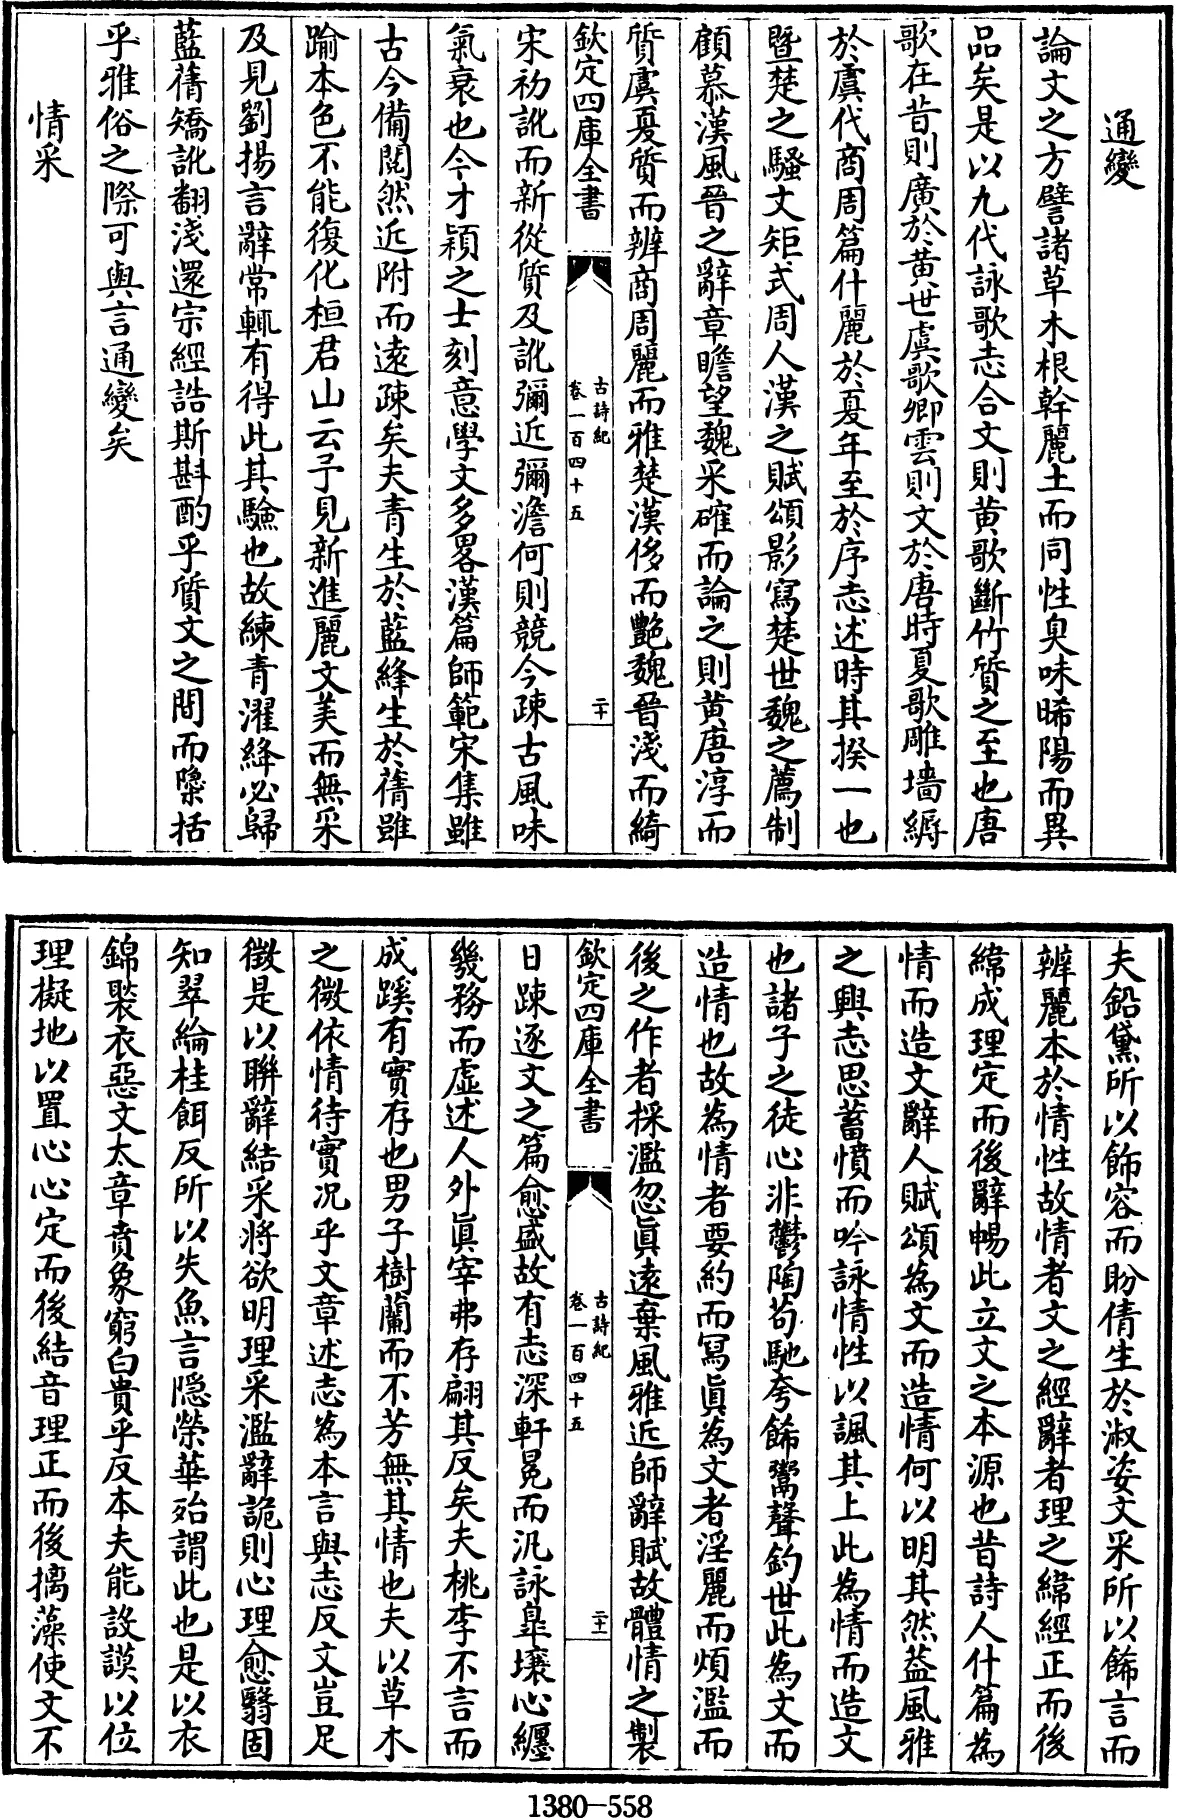 通變
論文之方譬諸草木根幹麗土而同性臭味晞陽而異
品矣是以九代詠歌志合文則黄歌斷竹質之至也唐
歌在昔則廣於黄世虞歌卿雲則文於唐時夏歌雕墻縟
於虞代商周篇什麗於夏年至於序志述時其揆一也
暨楚之騷文矩式周人漢之賦頌影寫楚世魏之薦制
顧慕漢風晉之辭章瞻望魏采確而論之則黄唐淳而
質虞夏質而辨商周麗而雅楚漢侈而艷魏晉淺而綺
欽定四庫全書
古詩紀
卷一百四十五
二十
宋初訛而新從質及訛彌近彌澹何則競今疎古風味
氣衰也今才頴之士刻意學文多畧漢篇師範宋集雖
古今備閲然近附而遠疎矣夫青生於藍絳生於蒨雖
踰本色不能復化桓君山云予見新進麗文美而無采
及見劉揚言辭常輒有得此其驗也故練青濯絳必歸
藍蒨矯訛翻淺還宗經誥斯斟酌乎質文之間而櫽括
乎雅俗之際可與言通變矣
情采
夫鉛黛所以飾容而盼倩生於淑姿文采所以飾言而
辨麗本於情性故情者文之經辭者理之緯經正而後
緯成理定而後辭暢此立文之本源也昔詩人什篇為
情而造文辭人賦頌為文而造情何以明其然葢風雅
之興志思蓄憤而吟詠情性以諷其上此為情而造文
也諸子之徒心非鬱陶苟馳夸飾鬻聲釣世此為文而
造情也故為情者要約而寫眞為文者淫麗而煩濫而
後之作者採濫忽眞遠棄風雅近師辭賦故體情之製
欽定四庫全書
古詩紀
卷一百四十五
二十一
日疎逐文之篇愈盛故有志深軒冕而汎詠臯壤心纒
幾務而虚述人外眞宰弗存翩其反矣夫桃李不言而
成蹊有實存也男子樹蘭而不芳無其情也夫以草木
之微依情待實况乎文章述志為本言與志反文豈足
徵是以聨辭結采將欲明理采濫辭詭則心理愈翳固
知翠綸桂餌反所以失魚言隱榮華殆謂此也是以衣
錦褧衣惡文太章賁象窮白貴乎反本夫能設謨以位
理擬地以置心心定而後結音理正而後摛藻使文不
1380—558